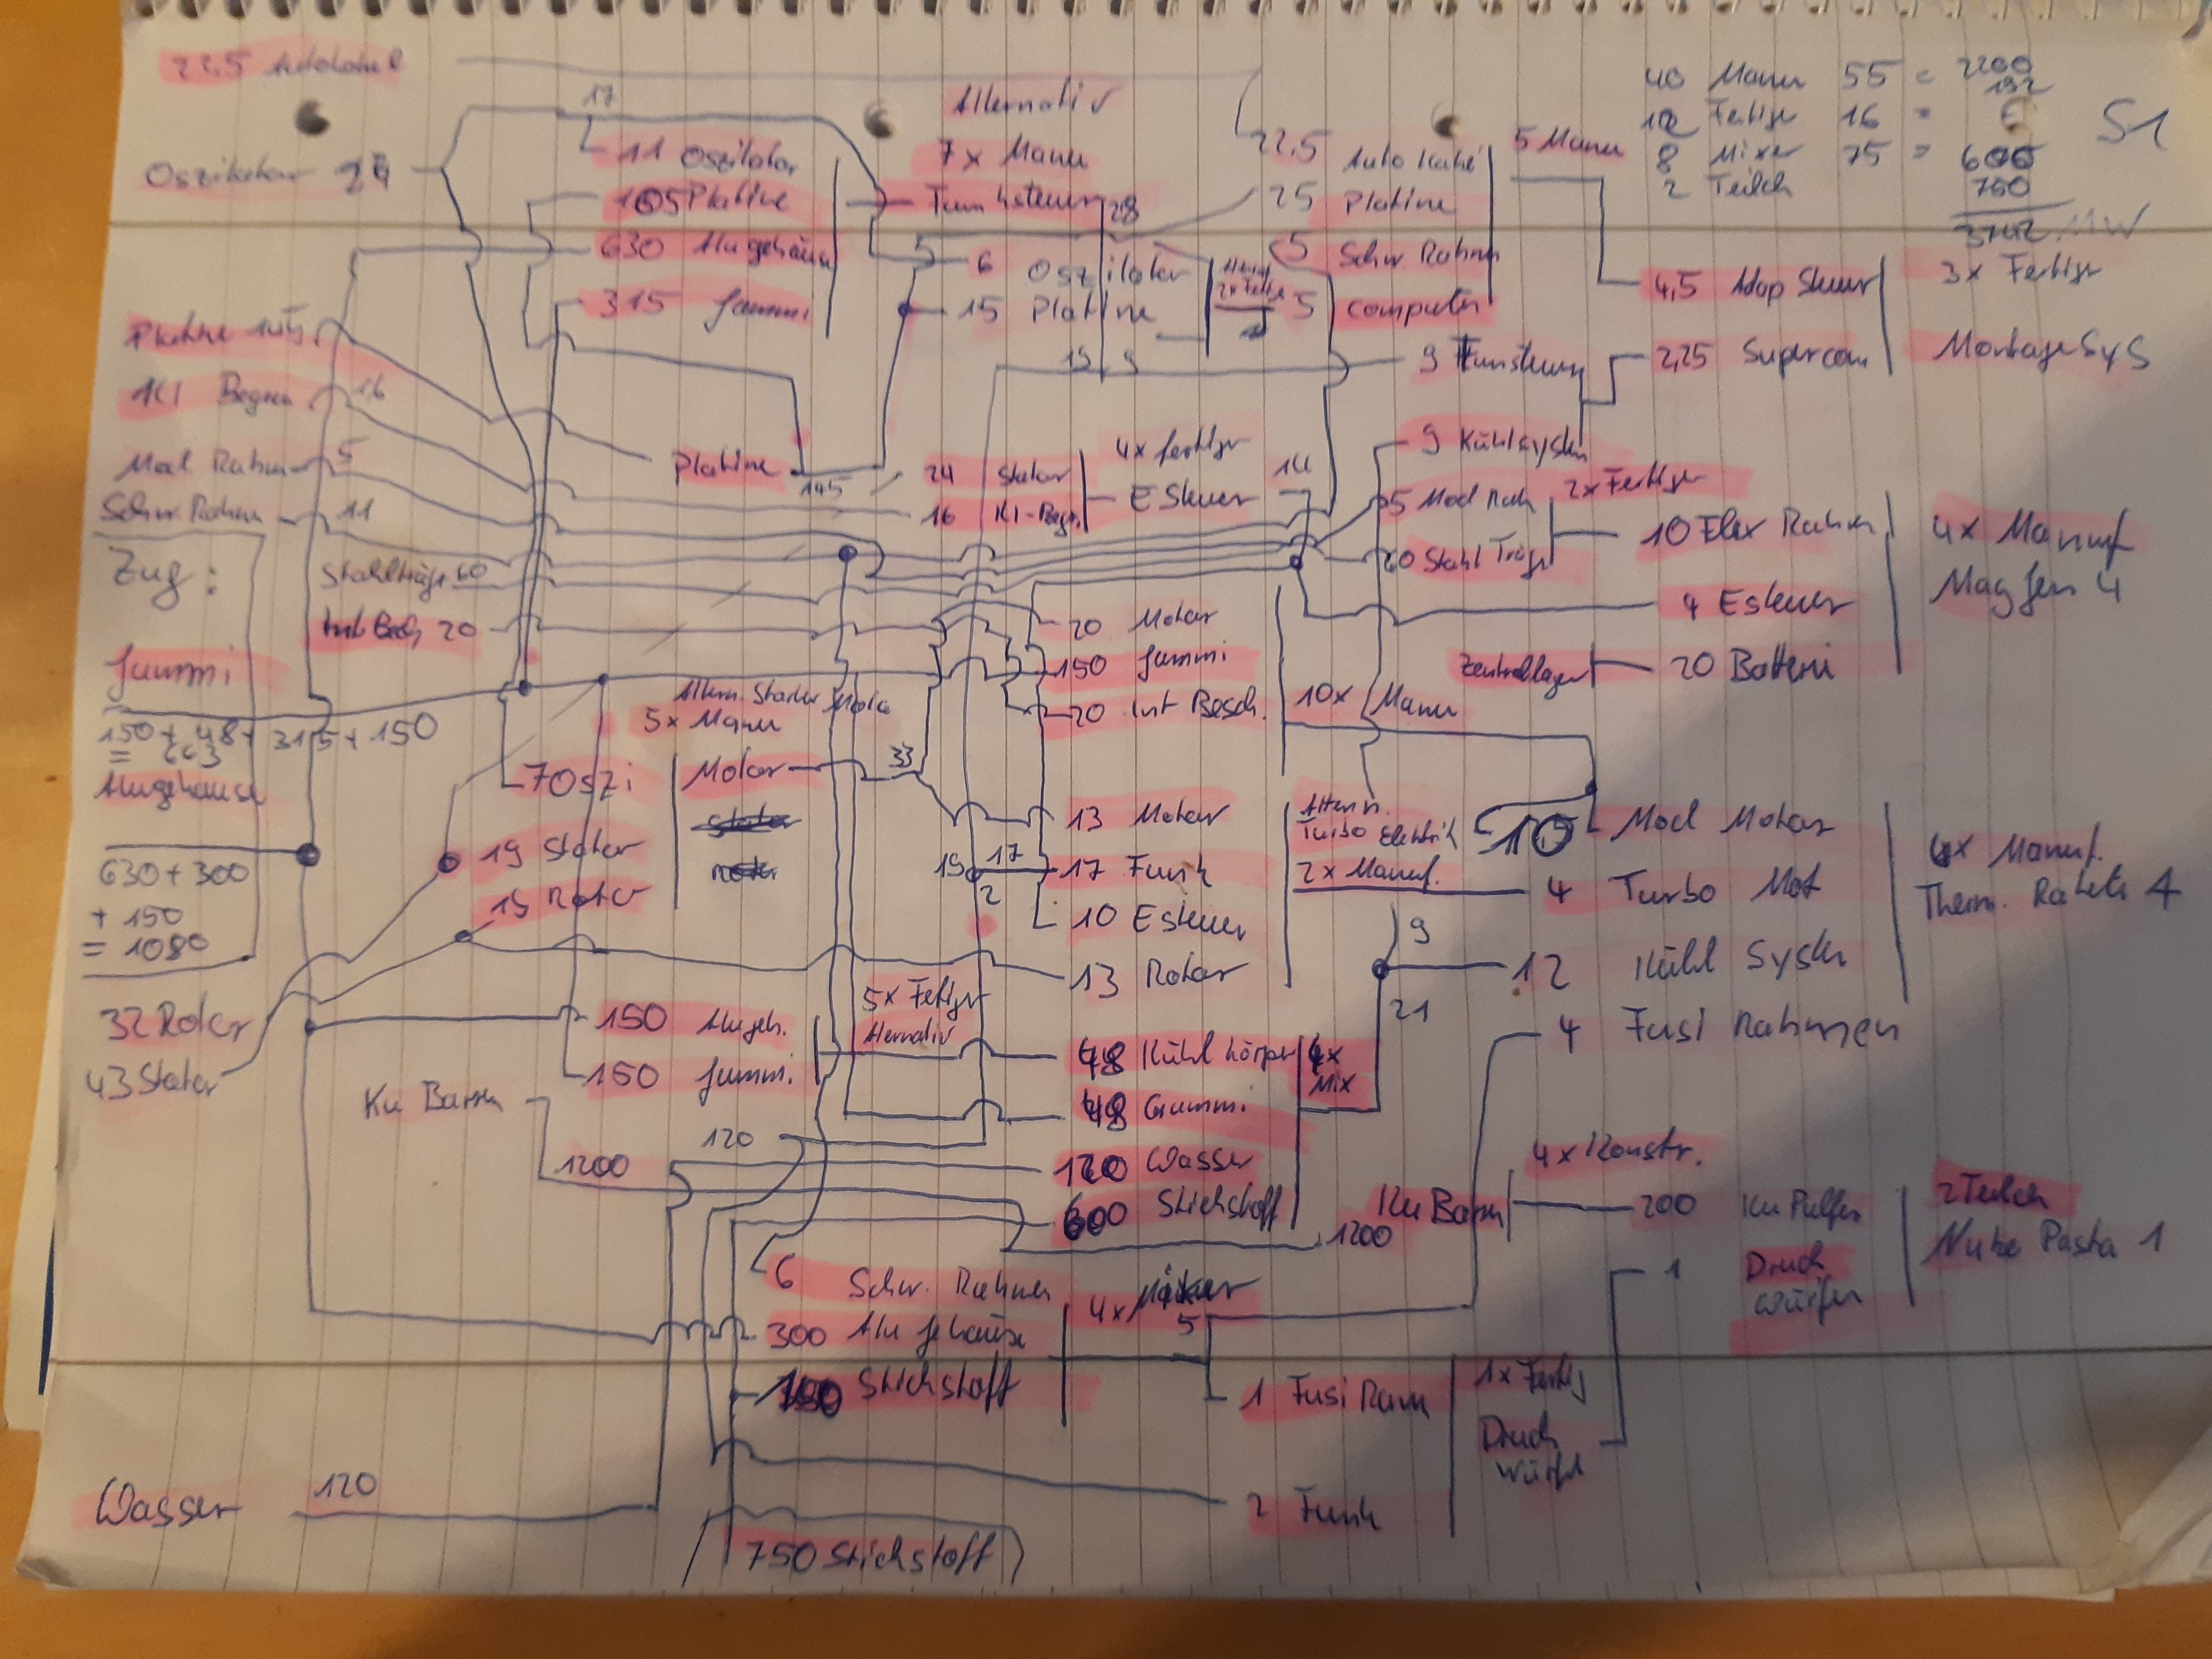 22,5
40 Manu 55 = 2200
Alternativ
12 Fertiger 16 = 192
S1
17
8 Mixer 75 = 600
2 Teilch 750
Oszilator
11 Oszilator
7x Manu
22,5
5 Manu
105 Platine
Funksteuer
28
25 Platine
3742 MW
630 Alugehäuse
6 Oszilator
5 Schw Rahm
4,5 Adap Steuer
3x Fertiger
315 Gummi
15 Platine
5 computer
Platine
19 9
9 Funksteuer
2,25 Supercom
Montage Sys
KI Begren 16
9 Kühlsystem
Mod Rahm 5
Platine
145
24 Stator
4x fertiger
14
Schw. Rahm 11
16 KI-Begr.
E Steuer
5 Mod Rah
2x Fertiger
10 Flex Rahm
4x Manuf
Zug:
Stahlträge 60
60 Stahl Träg
4 E steuer
Mag fen 4
20
20 Motor
Gummi
150 Gummi
Zentrallager
20 Batteri
Altern.
5x Manu
20 Int Besch.
10x Manu
150 + 48 + 315 + 150
= 663
7 Oszi
Motor
33
Alugehäuse
13 Motor
Altern.
Turbo Elektrik
10 Mod Motor
19 Stator
19
17
17 Funk
2x Manuf.
4 Turbo Mot
4x Manuf.
630 + 300
+ 150
= 1080
19 Rotor
2
10 E steuer
9
Therm. Rakete 4
13 Rotor
12 Kühl System
32 Rotor
150 Alugeh.
5x Fertiger
Alternativ
21
4 Fusi Rahmen
43 Stator
150 Gummi.
48 Kühl körper
4x
Mix
Ku Barren
48 Gummi.
120
4x Konstr.
1200
120 Wasser
600 Stickstoff
Ku Barren
200 Ku Pulfer
2 Teilch
1200
Nuke Pasta 1
6 Schw. Rahmen
1 Druck
würfer
300 Alu gehäuse
4x Mixer
5
Stickstoff
1 Fusi Ram
1x Fertig
Druck
würfel
Wasser 120
2 Funk
750 Stickstoff